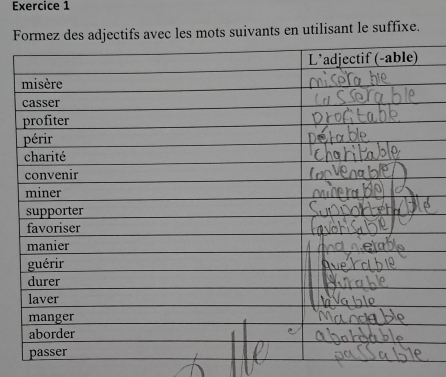 Exercice 1
Formez des adjectifs avec les mots suivants en utilisant le suffixe.
L'adjectif (-able)
misère misérable
casser casserable
profiter profitable
périr pérable
charité charitable
convenir convenable
miner minerable
supporter supporterable
favoriser favorisable
manier manierable
guérir guerable
durer durable
laver lavable
manger mangable
aborder abordable
passer passable